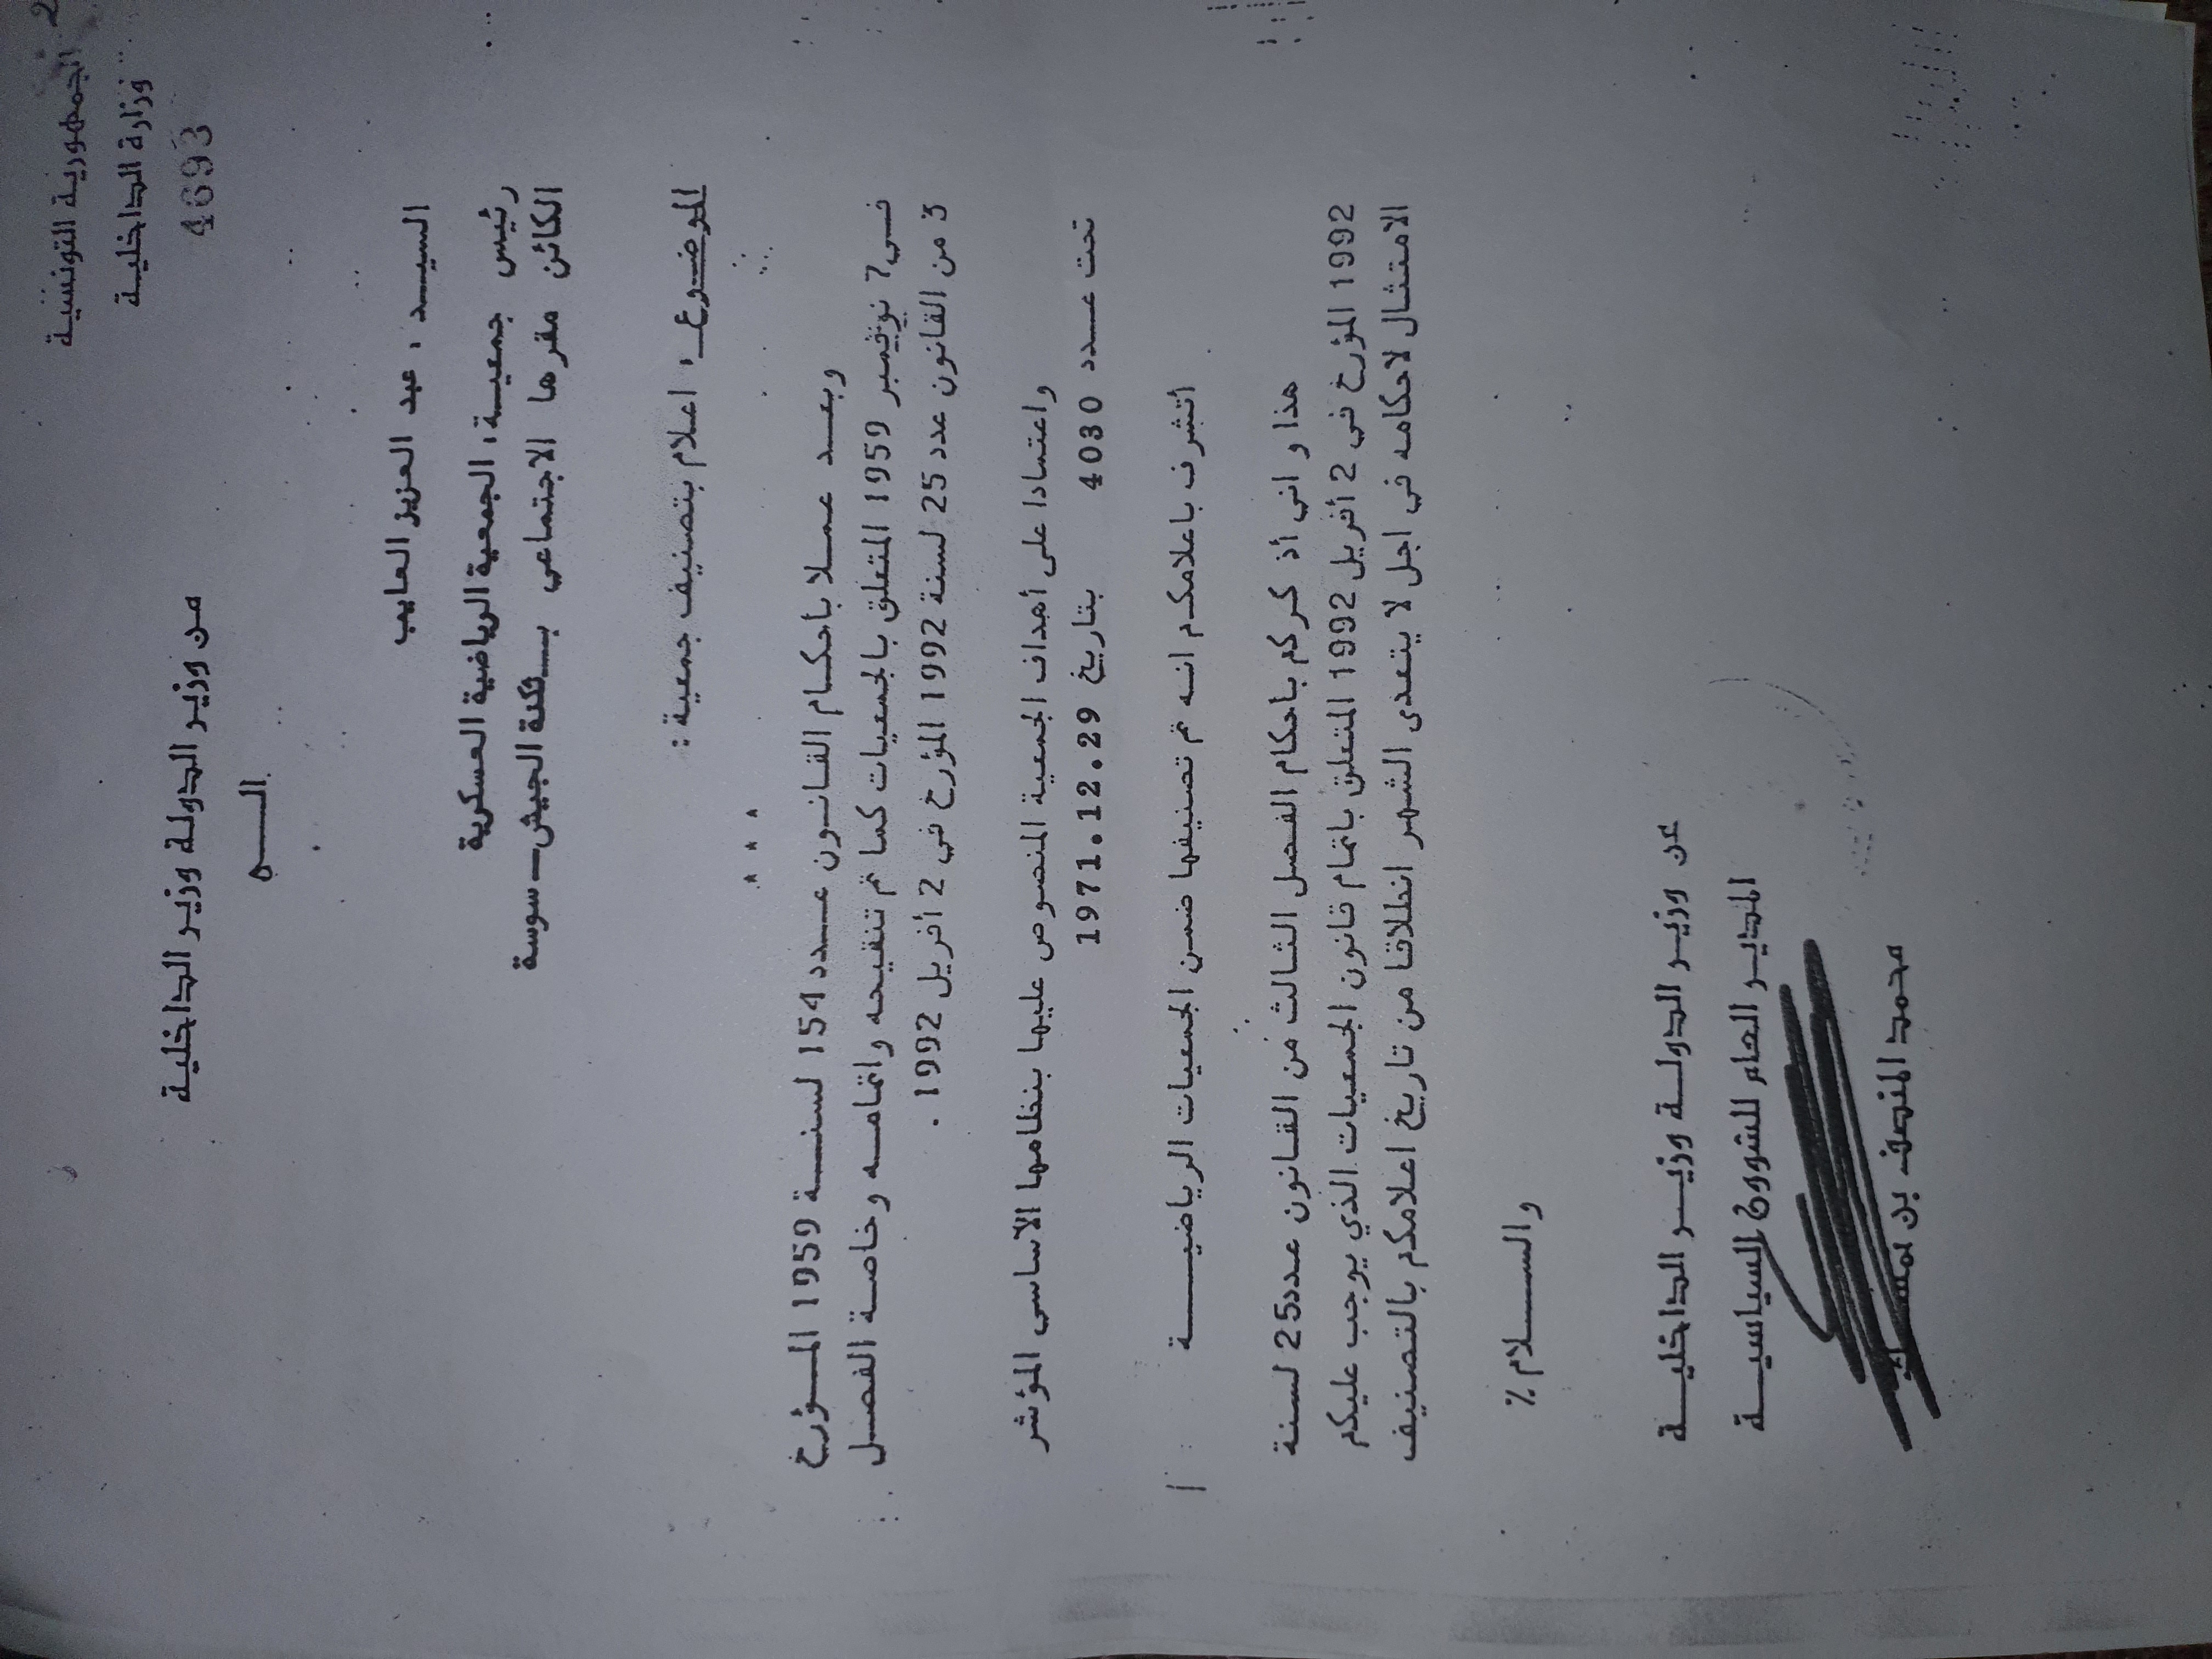 الجمهورية التونسية
وزارة الداخلية
4693
من وزير الدولة وزير الداخلية
الـــى
السيـــد : عبد العزيز العايب
رئيس جمعيـة: الجمعية الرياضية العسكرية
الكائن مقرها الاجتماعي بـــثكنة الجيش—سوسة
الموضـوع : اعلام بتصنيف جمعية :
* * *
وبعـــد عمـلا باحكـام القانـون عــدد 154 لسنــة 1959 المــؤرخ
فــي 7 نوفمبر 1959 المتعلق بالجمعيات كما تم تنقيحه واتمامـه وخاصة الفصـل
3 من القانون عدد 25 لسنة 1992 المؤرخ في 2 أفريل 1992 .
واعتمـادا على أهداف الجمعية المنصوص عليها بنظامها الأساسي المؤشر
تحت عــدد 4030 بتاريخ 1971.12.29
أتشرف باعلامكـم انـه تم تصنيفها ضمـن الجمعيات الرياضيـــــة
هذا و اني أذكركم باحكام الفصل الثالث من القانون عـدد 25 لسنة
1992 المؤرخ في 2 أفريل 1992 المتعلق باتمام قانون الجمعيات الذي يوجب عليكم
الامتثال لاحكامه في اجل لا يتعدى الشهر انطلاقا من تاريخ اعلامكم بالتصنيف
والســـــلام ٪
عن وزيـر الدولـة وزيـر الداخليـة
المديـر العام للشؤون السياسيـة
محمد المنصف بن